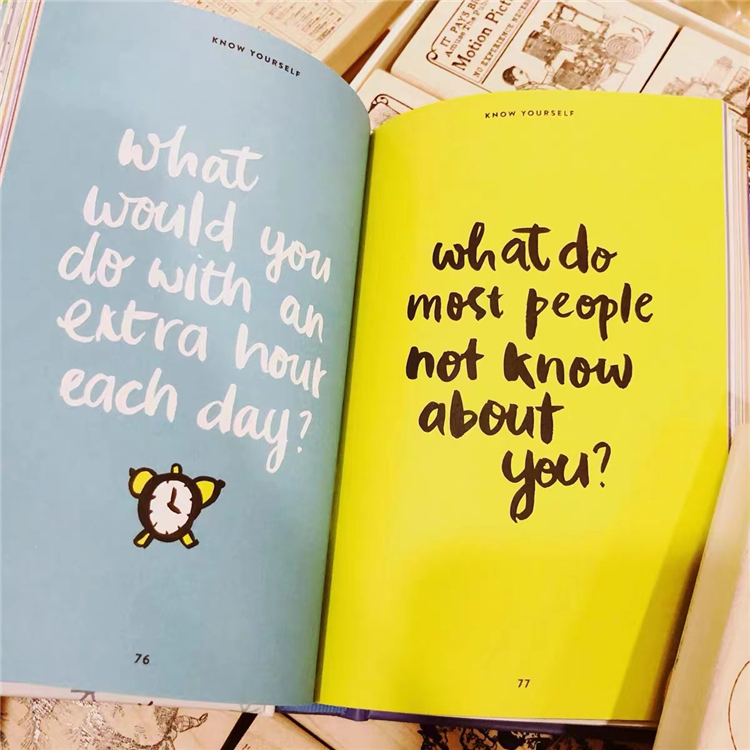 KNOW YOURSELF
what
would you
do with an
extra hour
each day?
76
KNOW YOURSELF
what do
most people
not know
about
you?
77
IT PAYS
Motion Pict